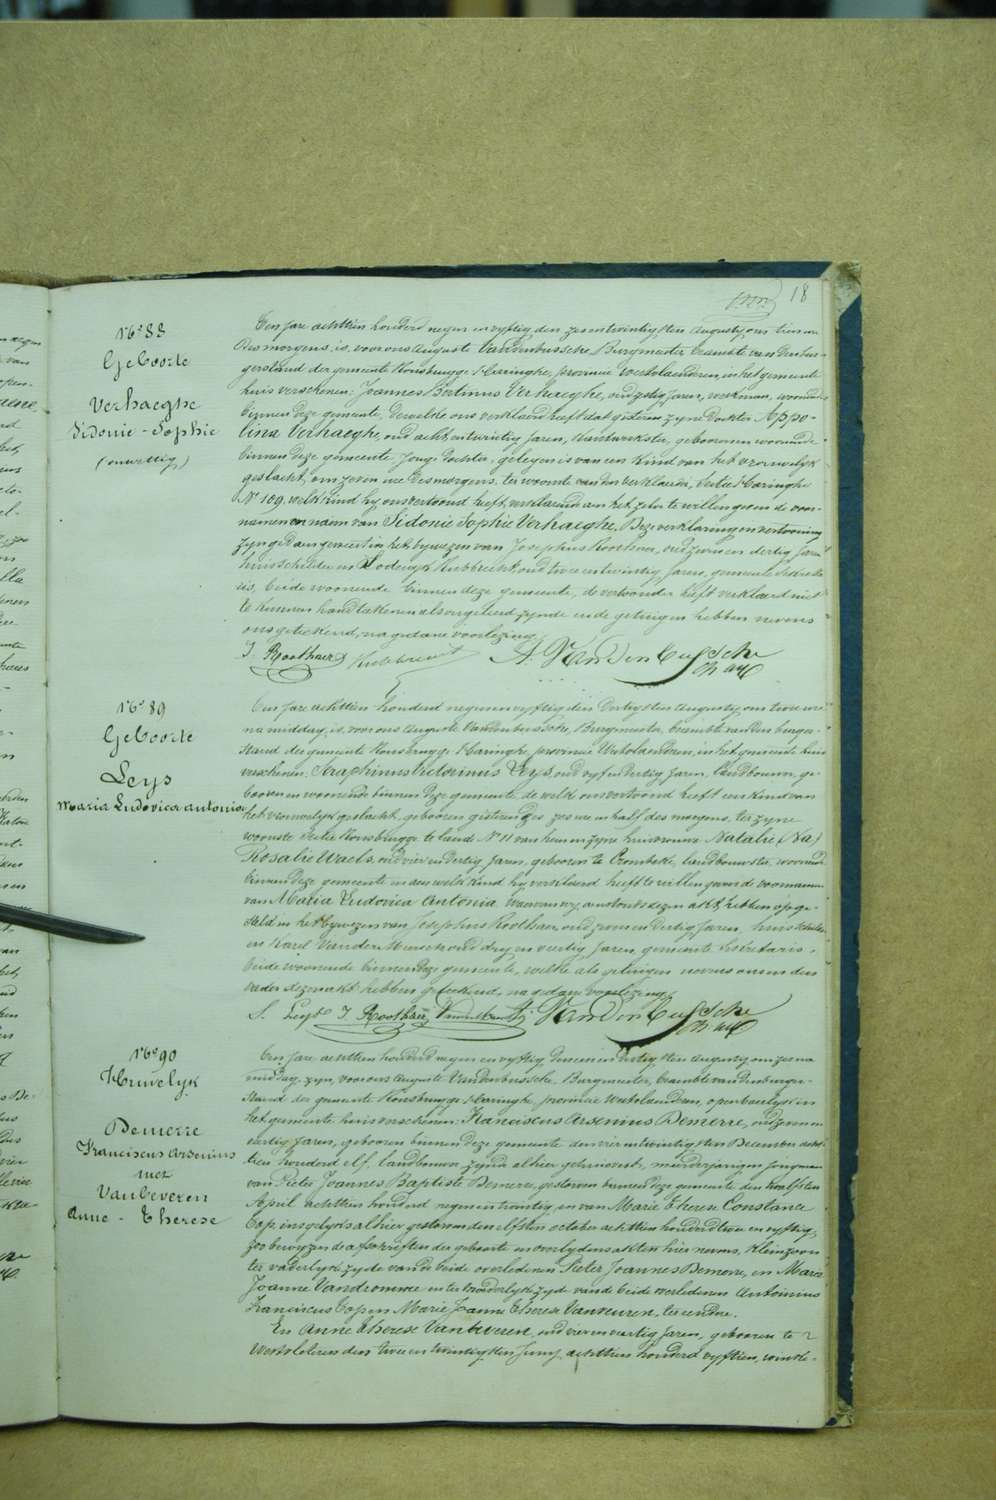 18
N° 88
Geboorte
Verhaeghe
Sidonie-Sophie
(onwettig)
Den Jare achttien honderd negen en vyftig den zesentwintigsten Augusty, om tien uren
des morgens, is, voor ons Auguste Vandenbussche, Burgmeester, beambte van den bur-
gerstand der gemeente Rousbrugge-Haringhe, provincie Westvlaenderen, in het gemeente
huis verschenen: Joannes Bertinus Verhaeghe, oud zestig Jaren, werkman, woonende
binnen deze gemeente, dewelke ons verklaerd heeft dat gisteren zyne Dochter Appo-
lina Verhaeghe, oud acht entwintig Jaren, Kantwerkster, geboren en woonende
binnen deze gemeente, Jonge dochter, gelegen is van een Kind van het vrouwelyk
geslacht, om zeven ure des morgens, ter woonste van den verklaerer, Sectie Haringhe
N° 109, welk kind hy ons vertoond heeft, verklarende aen het zelve te willen geven de voor-
namen en naem van Sidonie Sophie Verhaeghe, Deze verklaring en vertooning
zyn gedaen geweest in het bywezen van Josephus Roothaer, oud zeven en dertig Jaren
huisschilder en Lodewyk Hubbrecht, oud twee entwintig Jaren, gemeente Secreta-
ris, beide woonende binnen deze gemeente, de vertoonder heeft verklaerd niet
te kunnen handtekenen als ongeleerd zynde en de getuigen hebben nevens
ons geteekend, na gedane voorlezing.
J. Roothaer A. Vandenbussche
N° 89
Geboorte
Leys
Maria Ludovica Antonia
Den Jare achttien honderd negen en vyftig den dertigsten Augusty, om twee uren
na middag, is, voor ons Auguste Vandenbussche, Burgmeester, beambte van den burger-
stand der gemeente Rousbrugge-Haringhe, provincie Westvlaenderen, in het gemeente huis
verschenen: Seraphinus Victorinus Leys, oud vyf en dertig Jaren, landbouwer, ge-
boren en woonende binnen deze gemeente, de welke ons vertoond heeft een Kind van
het vrouwelyk geslacht, geboren gisteren, ten zes en half des morgens, ter zyne
woonste Sectie Rousbrugge te lande N° 11 van hem en zyne huisvrouw Natalie (Va)
Rosalie Waels, oud vier en dertig Jaren, geboren te Crombeke, landbouwster, woonende
binnen deze gemeente en aen welk Kind hy verklaerd heeft te willen geven de voornamen
van Maria Ludovica Antonia. Waervan wy aenstonds dezen akt hebben opge-
steld in het bywezen van Josephus Roothaer, oud zeven en dertig Jaren, huisschilder
en Karel Vander Meersch oud dry en veertig Jaren, gemeente Secretaris,
beide woonende binnen deze gemeente, welke als getuigen nevens ons en den
vader dezen akt hebben geteekend, na gedane voorlezing.
S. Leys J. Roothaer A. Vandenbussche
N° 90
Huwelyk
Demerre
Franciscus Arsenius
met
Vanbeveren
Anne-Therese
Den Jare achttien honderd negen en vyftig, den een en dertigsten Augusty om zes na
middag, zyn, voor ons Auguste Vandenbussche, Burgmeester, beambte van den burger-
stand der gemeente Rousbrugge-Haringhe, provincie Westvlaendren, openbaerlyk in
het gemeente huis verschenen: Franciscus Arsenius Demerre, oud zeven en
veertig Jaren, geboren binnen deze gemeente den vier entwintigsten December acht-
tien honderd elf, landbouwer, zynde alhier gehuisvest, meerderjarigen jongman
van Pieter Joannes Baptiste Demerre, gestorven binnen deze gemeente den twaelfsten
April achttien honderd negen en twintig en van Marie Therese Constance
Cop, insgelyks alhier gestorven den elfsten october achttien honderd twee en vyftig,
zoo bewyzen de afschriften der geboorte en overlydens akten hier nevens, kleinzoon
ter vaderlyke zyde van de beide overledenen Pieter Joannes Demerre, en Marie
Joanne Vandromme en ter moederlyke zyde van de beide overledenen Antonius
Franciscus Cop en Marie Joanne Therese Vanveuren, ter eendre.
En Anne Therese Vanbeveren, oud vier en veertig Jaren, geboren te
Westvleteren den twee en twintigsten Juny achttien honderd vyftien, winke-